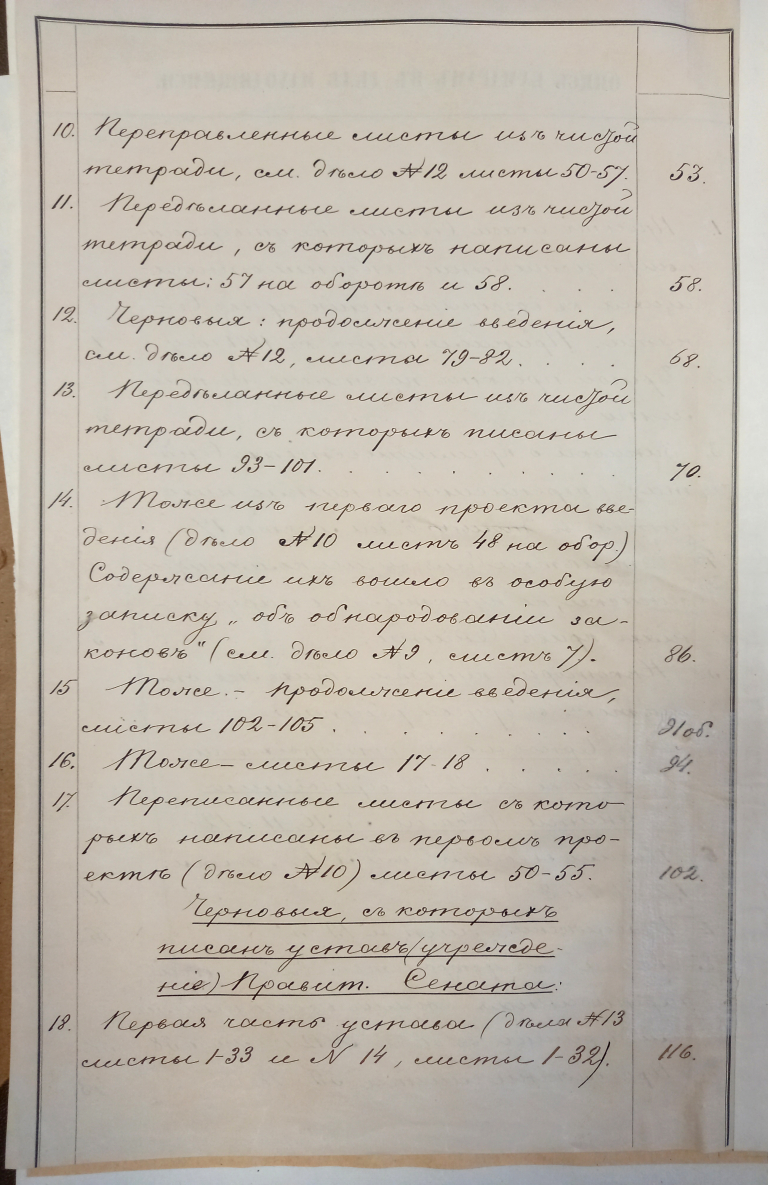 10. Переправленные листы изъ чистой
тетради, см. дѣло №12 листы 50-57. 53.
11. Передѣланные листы изъ чистой
тетради, съ которыхъ написаны
листы: 57 на оборотѣ и 58. . . . 58.
12. Черновыя: продолженіе введенія,
см. дѣло №12, листы 79-82. . . . 68.
13. Передѣланные листы изъ чистой
тетради, съ которыхъ писаны
листы 93-101. . . . . . . . . 70.
14. Тоже изъ перваго проекта вве-
денія (дѣло №10 листъ 48 на обор.)
Содержаніе ихъ вошло въ особую
записку „объ обнародованіи за-
коновъ" (см. дѣло №9, листъ 7). 86.
15 Тоже.- продолженіе введенія,
листы 102-105. . . . . . . . 91об.
16. Тоже- листы 17-18 . . . . . 94.
17. Переписанные листы съ кото-
рыхъ написаны въ первомъ про-
ектѣ (дѣло №10) листы 50-55. 102.
Черновыя, съ которыхъ
писанъ уставъ (учрежде-
ніе) Правит. Сената:
18. Первая часть устава (дѣла №13
листы 1-33 и N 14, листы 1-32). 116.